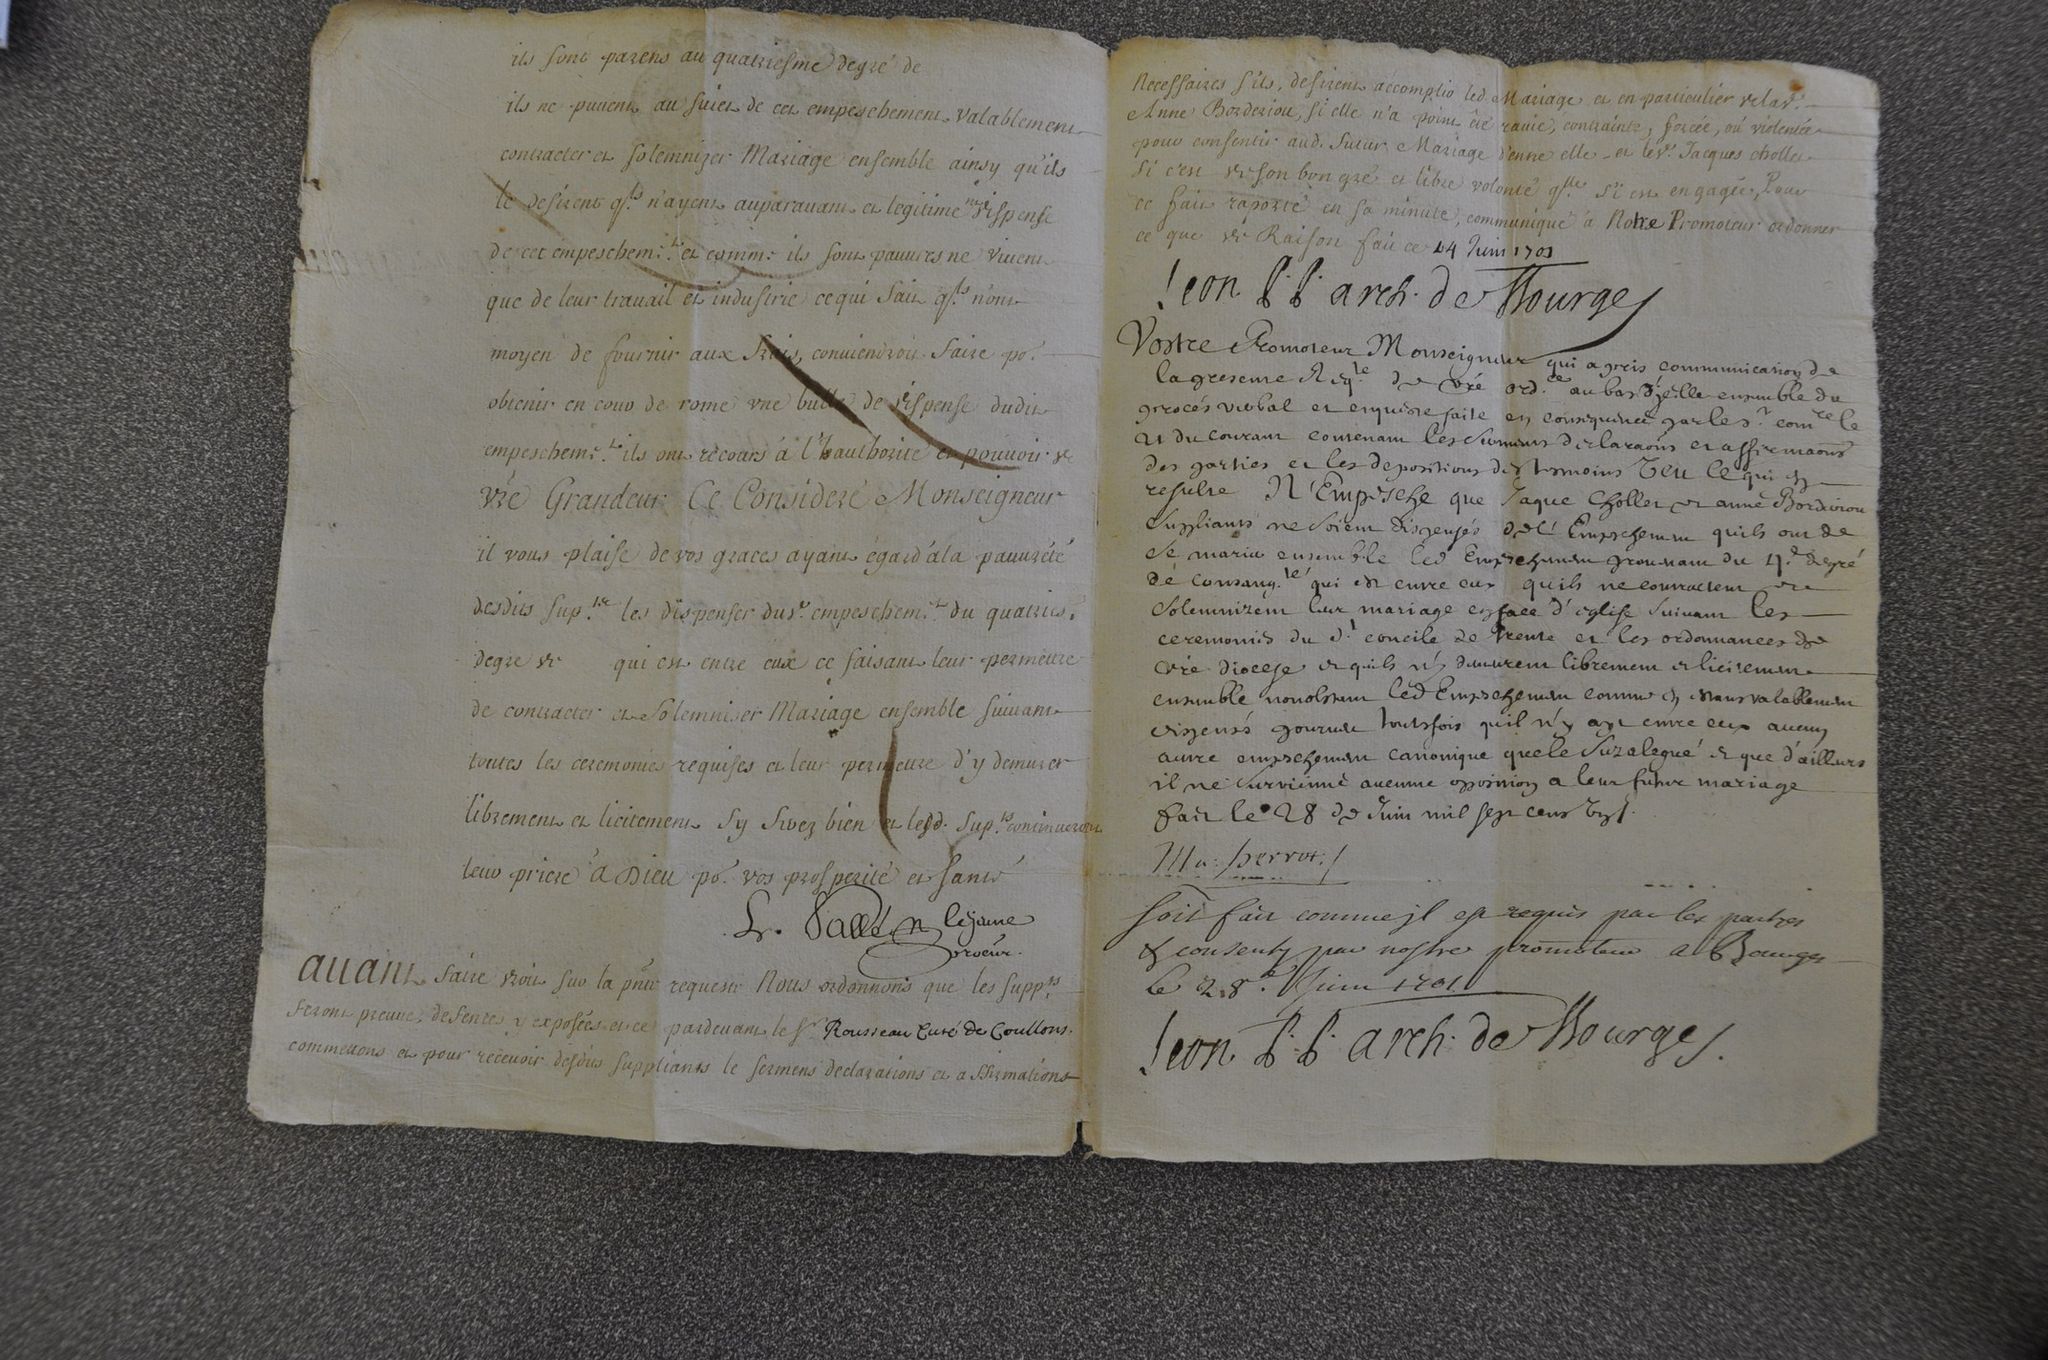 ils sont parens au quatriesme degré de
ils ne puvent au suiet de cet empeschement valablement
contracter et solemnizer Mariage ensemble ainsy qu'ils
le desirent qls n'ayent auparavant et legitime mt dispense
de cet empeschem.t et comme ils sont pauvres ne vivent
que de leur travail et industrie ce qui fait qls n'ont
moyen de fournir aux frais, conviendroit faire po.r
obtenir en cour de rome une bulle de dispense dudit
empeschem.t ils ont recours à l'hauthorité et pouvoir de
vre Grandeur Ce Consideré Monseigneur
il vous plaise de vos graces ayant égard à la pauvreté
desdits sup.ts les dispenser dud. empeschem.t du quatries.e
degre de qui est entre eux ce faisant leur permettre
de contracter et solemniser Mariage ensemble suivant
toutes les ceremonies requises et leur permettre d'y demurer
librement et licitement sy ferez bien et lesd. sup.ts continueront
leur priere à Dieu po.r vos prosperité et santé
lejeune
procur.
avant faire droit sur la pnte requeste Nous ordonnons que les suppts
feront preuve des faits y exposées et ce pardevant le Sr Rousseau Curé de Coullons.
commettons et pour recevoir desdits suppliants le sermens declarations et affirmations
Necessaires s'ils desirent accomplir led. Mariage et en particulier de lad.
Anne Borderiou, si elle n'a point été ravie, contrainte, forcée, ou violentée
pour consentir aud. futur Mariage d'entre elle et led. Jacques chollet
si c'est de son bon gré et libre volonté qlle s'i est engagée, Pour
ce fait raporté en sa minute, communiqué à Notre Promoteur ordonner
ce que de Raison fait ce 14 Juin 1701
Leon P. P. arch. de Bourges
Vostre Promoteur Monseigneur qui a pris communication de
la presente Reqte de vre ordce au bas d'icelle ensemble du
procés verbal et enqueste faite en consequence par le sr comre le
21 du courant contenant les sermens declaraons et affirmaons
des parties et les depositions des tesmoins Veu ce qui en
resulte N'Empesche que Jaque Chollet et anne Borderiou
suppliants ne soient dispensés de l'Empeschement quils ont de
se marier ensemble led Empeschement provenant du 4.e degré
de consang.té qui est entre eux quils ne contractent et
solemnizent leur mariage en face d'eglise suivant les
ceremonies du St concile de trente et les ordonnances de
vre diocese et quils n'y demeurent librement et licitement
ensemble nonobstant led Empeschement comme en etans valablement
dispensés pourveu toutesfois quil n'y ayt entre eux aucun
autre empeschement canonique que le susalegué et que d'ailleurs
il ne survienne aucune opposition a leur futur mariage
fait le 28 de Juin mil sept cens un.
Ma: perrot
soit fait comme il est requis par les parties
& consenty par nostre promoteur a Bourges
le 28.e Juin 1701
Leon P. P. arch. de Bourges.